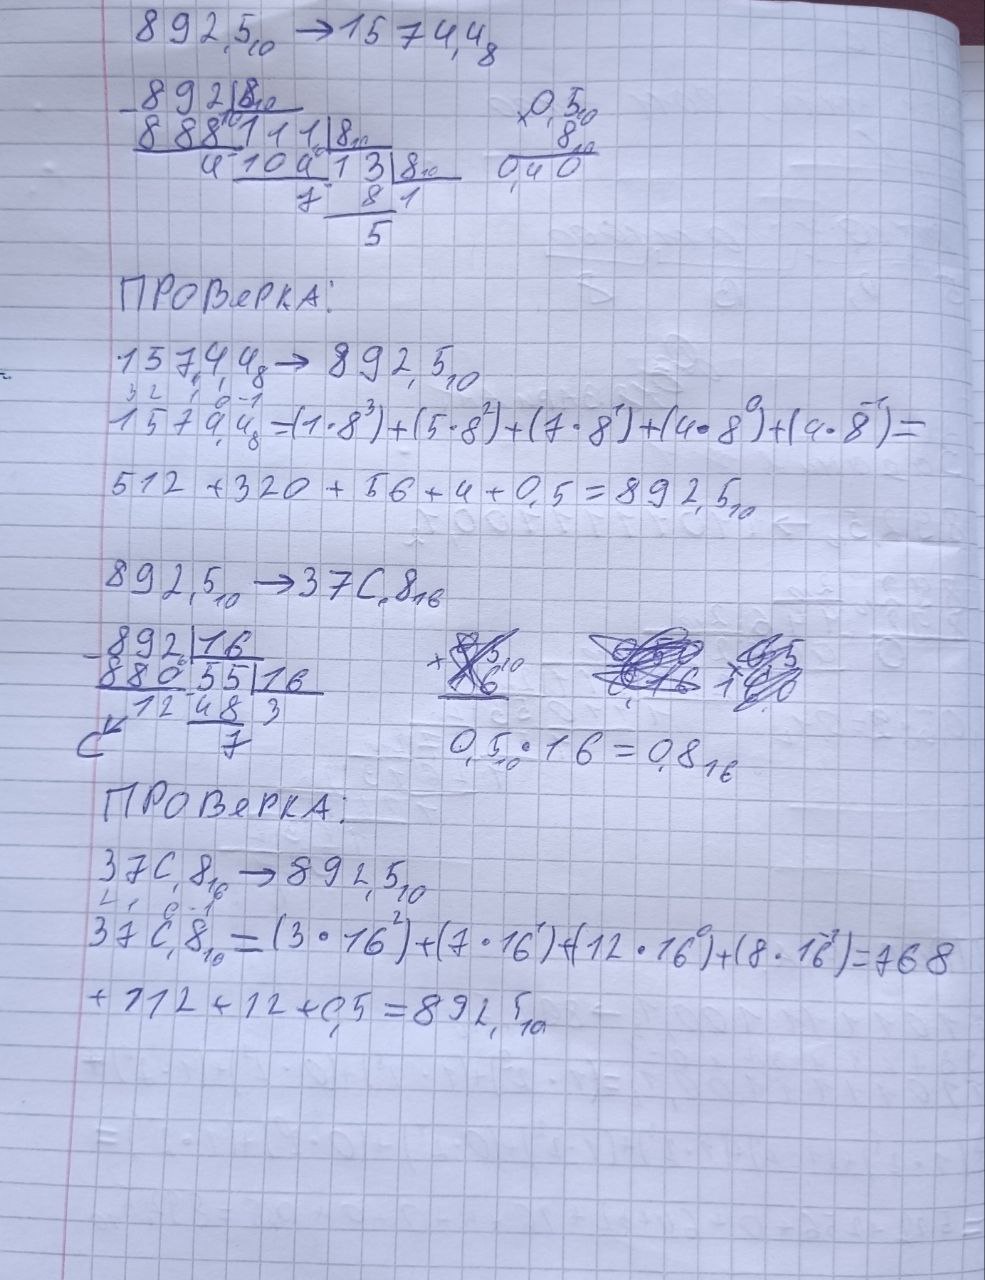 892,5₁₀ → 1574,4₈
892 8₁₀
888 111 8₁₀
4 104 13 8₁₀
7 8 1
5
× 0,5₁₀
8₁₀
0,40
ПРОВеРКА:
1574,4₈ → 892,5₁₀
3 2 1 0 -1
1574,4₈ = (1·8³)+(5·8²)+(7·8¹)+(4·8⁰)+(4·8⁻¹)=
512 + 320 + 56 + 4 + 0,5 = 892,5₁₀
892,5₁₀ → 37C,8₁₆
892 16
880 55 16
12 48 3
C 7
0,5₁₀ · 16 = 0,8₁₆
ПРОВеРКА:
37C,8₁₆ → 892,5₁₀
2 1 0 -1
37C,8₁₀ = (3·16²)+(7·16¹)+(12·16⁰)+(8·16⁻¹)=768
+ 112 + 12 + 0,5 = 892,5₁₀